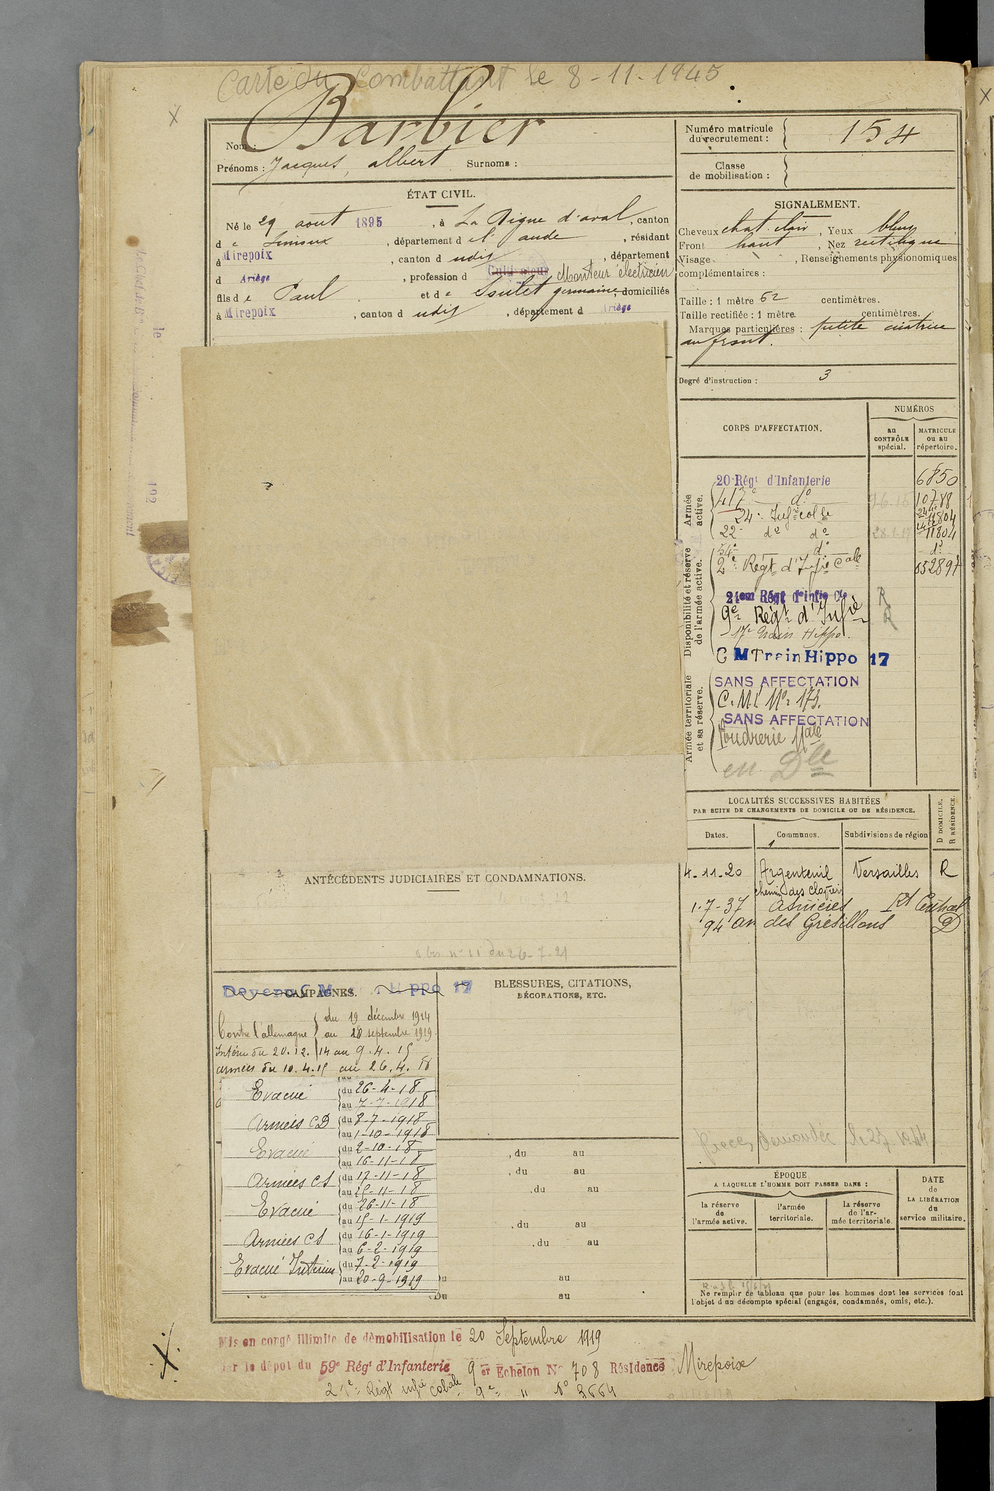 Carte du Combattant le 8-11-1945
Barbier
Nom :
Prénoms : Jacques, albert Surnoms :
Numéro matricule du recrutement : 154
Classe de mobilisation :
ÉTAT CIVIL.
Né le 29 aout 1895, à La Digne d'aval, canton
d e Limoux, département d e l'aude, résidant
à Mirepoix, canton d udit, département
d Ariège, profession d Cultivateur Monteur électricien
fils d e Paul et d e Soulet germaine, domiciliés
à Mirepoix, canton d udit, département d Ariège
SIGNALEMENT.
Cheveux chat. clair, Yeux bleus
Front haut, Nez rectiligne
Visage , Renseignements physionomiques
complémentaires :
Taille : 1 mètre 62 centimètres.
Taille rectifiée : 1 mètre centimètres.
Marques particulières : petite cicatrice
au front.
Degré d'instruction : 3
CORPS D'AFFECTATION.
NUMÉROS
au CONTRÔLE spécial.
MATRICULE ou au répertoire.
Armée active.
Disponibilité et réserve de l'armée active.
Armée territoriale et sa réserve.
20 Régt d'Infanterie 6850
417e do 10788
24e Infie colle
22e do do 11804
54e do do
2e Régt d'Infie Cale
21eme Régt d'Infie Cle R
9e Régt d'Infie R
17e Train Hippo.
C M Train Hippo 17
SANS AFFECTATION
C. M. No 173.
SANS AFFECTATION
Poudrerie Nale
en Dle
LOCALITÉS SUCCESSIVES HABITÉES
PAR SUITE DE CHANGEMENTS DE DOMICILE OU DE RÉSIDENCE.
Dates. Communes. Subdivisions de région
D DOMICILE. R RÉSIDENCE.
4-11-20 Argenteuil Versailles R
1-7-37 Asnières Rt Central
94 av des Grésillons D
ANTÉCÉDENTS JUDICIAIRES ET CONDAMNATIONS.
CAMPAGNES.
Contre l'allemagne du 19 décembre 1914
au 20 septembre 1919
Intérieur du 20.12.14 au 9.4.15
armées du 10.4.15 au 26.4.18
Evacué du 26-4-18
au 7-7-1918
Armées CD du 8-7-1918
au 1-10-1918
Evacué du 2-10-18
au 16-11-18
Armées CS du 17-11-18
au 25-11-18
Evacué du 26-11-18
au 15-1-1919
Armées CS du 16-1-1919
au 6-2-1919
Evacué Intérieur du 7-2-1919
au 20-9-1919
BLESSURES, CITATIONS,
DÉCORATIONS, ETC.
, du au
, du au
, du au
, du au
, du au
du au
du au
ÉPOQUE
A LAQUELLE L'HOMME DOIT PASSER DANS :
la réserve de l'armée active.
l'armée territoriale.
la réserve de l'armée territoriale.
DATE de LA LIBÉRATION du service militaire.
Ne remplir ce tableau que pour les hommes dont les services font
l'objet d'un décompte spécial (engagés, condamnés, omis, etc.).
Mis en congé illimité de démobilisation le 20 Septembre 1919
par le dépôt du 59e Régt d'Infanterie 9er Echelon No 708 Résidence Mirepoix
21e Régt infie colale 9e " No 2664